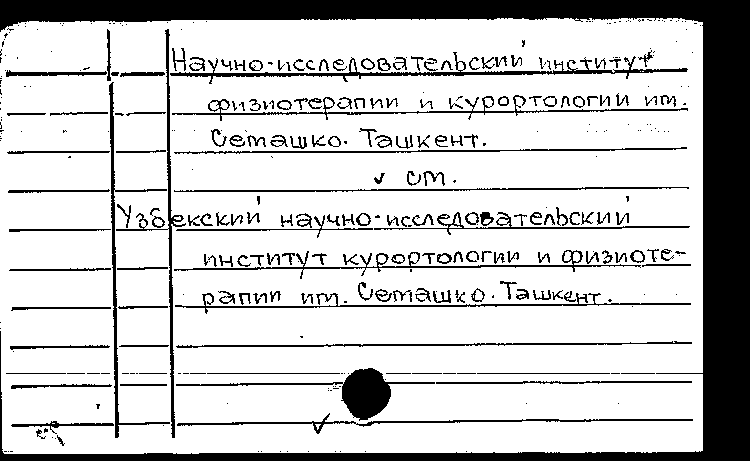 Научно-исследовательский институт
физиотерапии и курортологии им.
Семашко. Ташкент.
✓ см.
Узбекский научно-исследовательский
институт курортологии и физиоте-
рапии им. Семашко. Ташкент.
✓